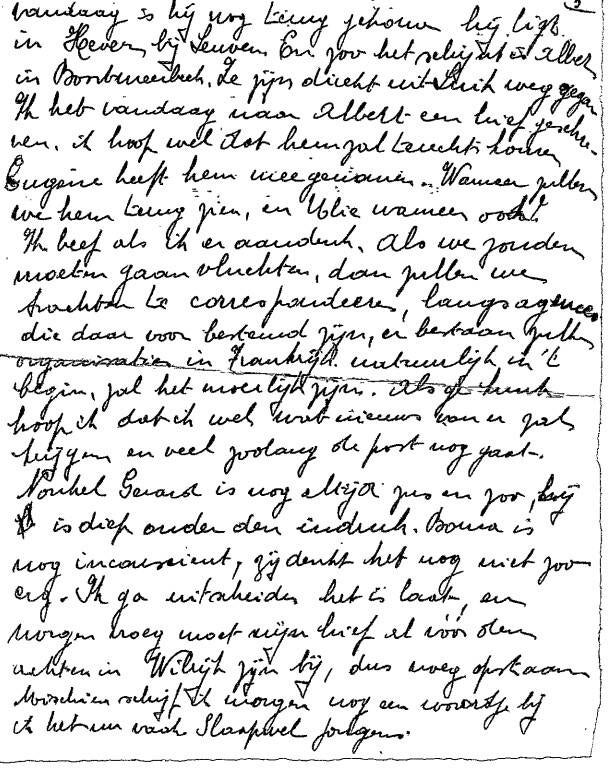 vandaag is hij nog terug gekomen hij ligt
in Hever bij Leuven En zoo het schijnt is Albert
in Boortmeerbeek. Ze zijn direkt uit Luik weg gegaan
Ik heb vandaag naar Albert een brief geschre-
ven. ik hoop wel dat hem zal terecht komen
Eugène heeft hem meegenomen. Wanneer zullen
we hem terug zien, en wanneer ook!
Ik beef als ik er aandenk. Als we zouden
moeten gaan vluchten, dan zullen we
trachten te correspondeeren, langs agences
die daar voor bestemd zijn, er bestaan zulke
organisaties in Frankrijk. natuurlijk in 't
begin, zal het moeilijk zijn. Als ge kunt
hoop ik dat ik wel wat nieuws van er zal
krijgen en veel zoolang de post nog gaat.
Nonkel Gerard is nog altijd zus en zoo, hij
is diep onder den indruk. Boma is
nog inconscient, zij denkt het nog niet zoo
erg. Ik ga uitscheiden het is laat, en
morgen vroeg moet mijn brief al vóór den
achten in Wilrijk zijn bij, dus vroeg opstaan
Misschien schrijf ik morgen nog een woordje bij
ik heb nu vaak Slaapwel jongens.